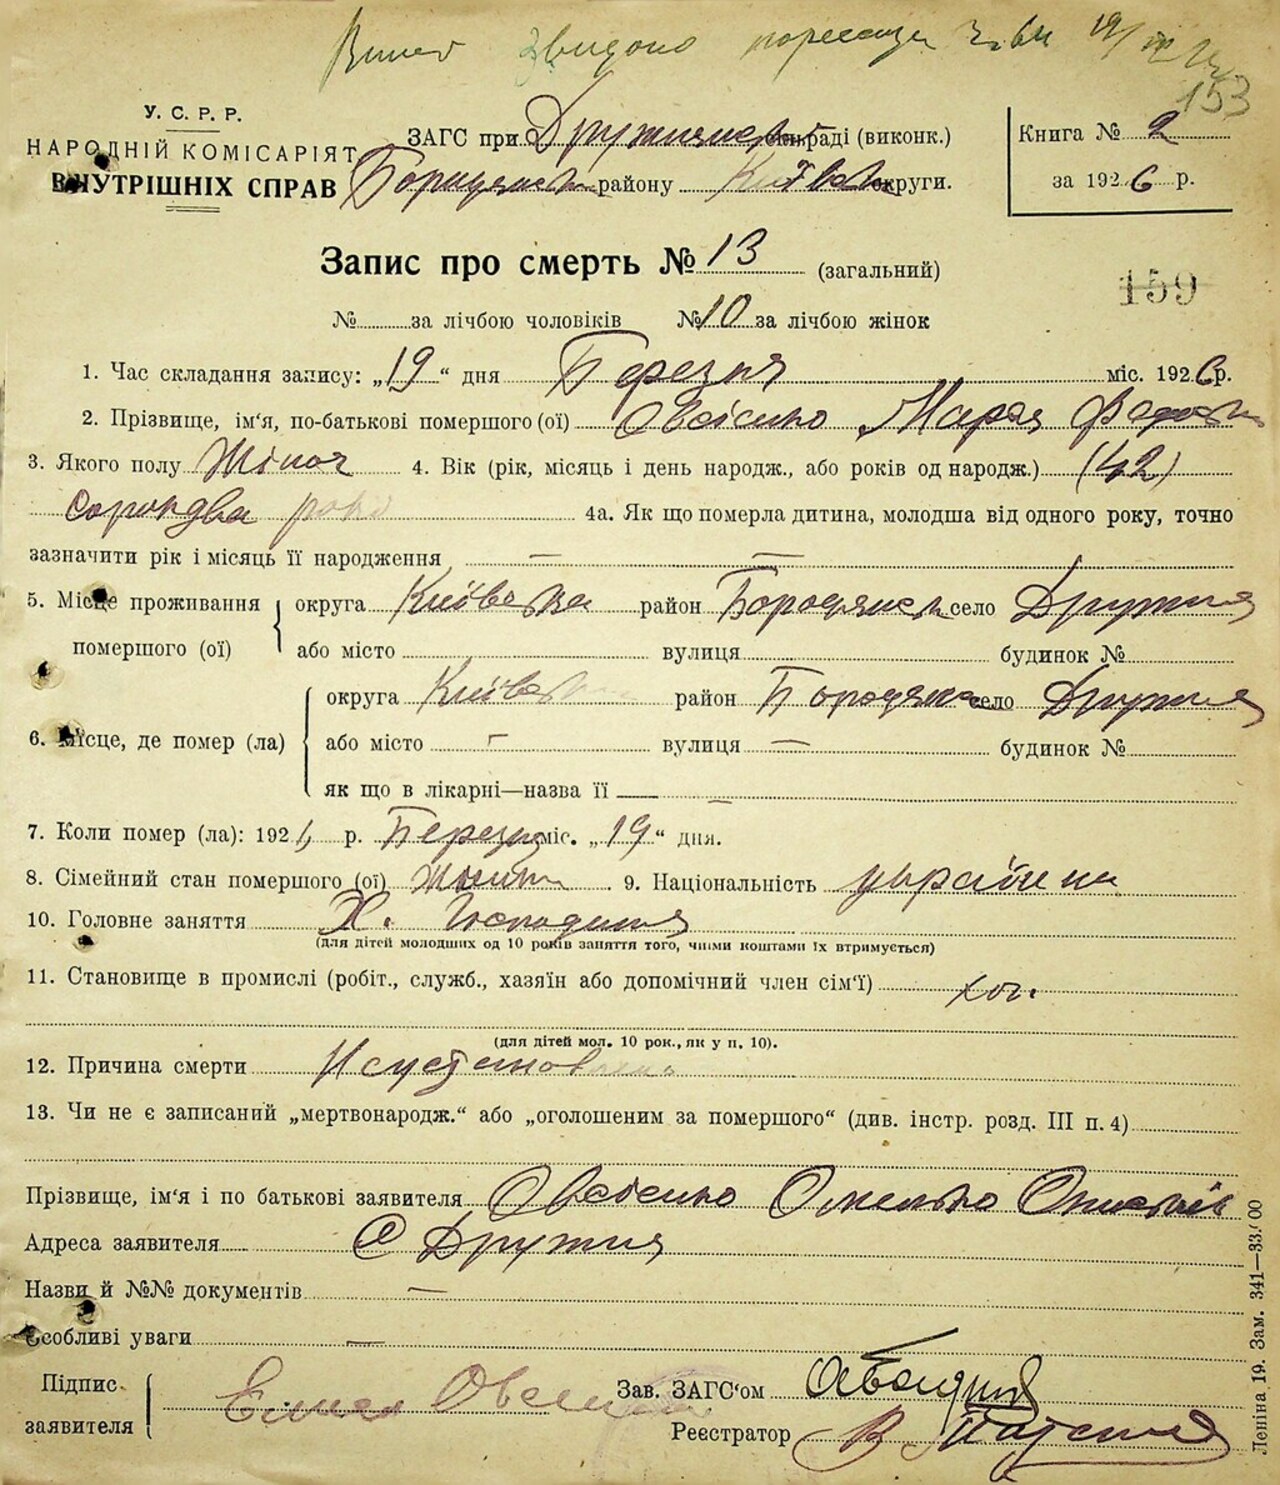 153
У. С. Р. Р.
НАРОДНІЙ КОМІСАРІЯТ
ВНУТРІШНІХ СПРАВ
ЗАГС при раді (виконк.)
району округи.
Книга № 2
за 1926 р.
Запис про смерть № 13 (загальний)
159
№ за лічбою чоловіків № 10 за лічбою жінок
1. Час складання запису: „19“ дня Березня міс. 1926 р.
2. Прізвище, ім'я, по-батькові помершого (ої) Овсієнко Марія
3. Якого полу Жіноч 4. Вік (рік, місяць і день народж., або років од народж.) (42)
Сорокдва роки
4а. Як що померла дитина, молодша від одного року, точно
зазначити рік і місяць її народження — —
5. Місце проживання помершого (ої)
округа Київська район Бородянськ село Дружня
або місто вулиця будинок №
6. Місце, де помер (ла)
округа Київськ район Бородянськ село Дружня
або місто - вулиця — будинок №
як що в лікарні—назва її —
7. Коли помер (ла): 192 р. Березня міс. „19“ дня.
8. Сімейний стан помершого (ої) 9. Національність україна
10. Головне заняття Х. Господиня
(для дітей молодших од 10 років заняття того, чиїми коштами їх втримується)
11. Становище в промислі (робіт., служб., хазяїн або допомічний член сім'ї)
(для дітей мол. 10 рок., як у п. 10).
12. Причина смерти
13. Чи не є записаний „мертвонародж.“ або „оголошеним за помершого“ (див. інстр. розд. III п. 4)
Прізвище, ім'я і по батькові заявителя Овсієнко Омелько
Адреса заявителя С Дружня
Назви й №№ документів —
Особливі уваги —
Підпис заявителя
Зав. ЗАГС'ом
Реєстратор
Леніна 19. Зам. 341—33.000